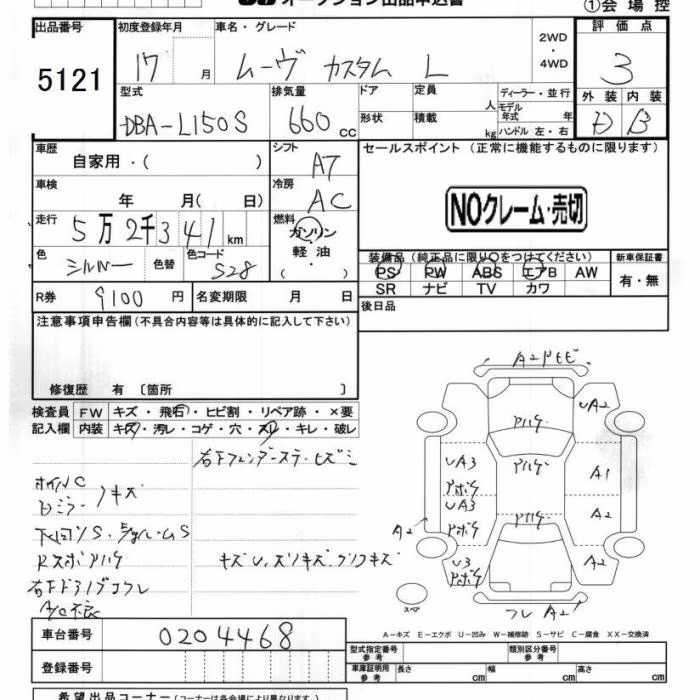 オークション出品申込書
①会場控
出品番号 初度登録年月 車名・グレード 評価点
5121 17 月 ムーヴ カスタム L 2WD・4WD 3
型式 排気量 ドア 定員 人 ディーラー・並行 外装 内装
DBA-L150S 660 cc 形状 積載 kg モデル年式 年 ハンドル 左・右 D B
車歴 自家用・( ) シフト AT セールスポイント (正常に機能するものに限ります)
車検 年 月( 日) 冷房 AC
NOクレーム・売切
走行 5万2千341 km 燃料 ガソリン 軽油 ・( )
色 シルバー 色替 色コード S28
装備品 (純正品に限り○をつけてください) 新車保証書
PS PW ABS エアB AW 有・無
SR ナビ TV カワ
R券 9100 円 名変期限 月 日 後日品
注意事項申告欄(不具合内容等は具体的に記入して下さい)
修復歴 有 〔箇所 〕
検査員 FW キズ・飛石・ヒビ割・リペア跡・×要
記入欄 内装 キズ・汚レ・コゲ・穴・スレ・キレ・破レ
A2
UA2
UA3
A1
UA3
A2
A2
U3
A2
A2
スペア
A-キズ E-エクボ U-凹み W-補修跡 S-サビ C-腐食 XX-交換済
車台番号 0204468
登録番号
型式指定番号 参考 類別区分番号 参考
車庫証明用 参考 長さ cm 幅 cm 高さ cm
希望出品コーナー (コーナーは各会場により異なります)